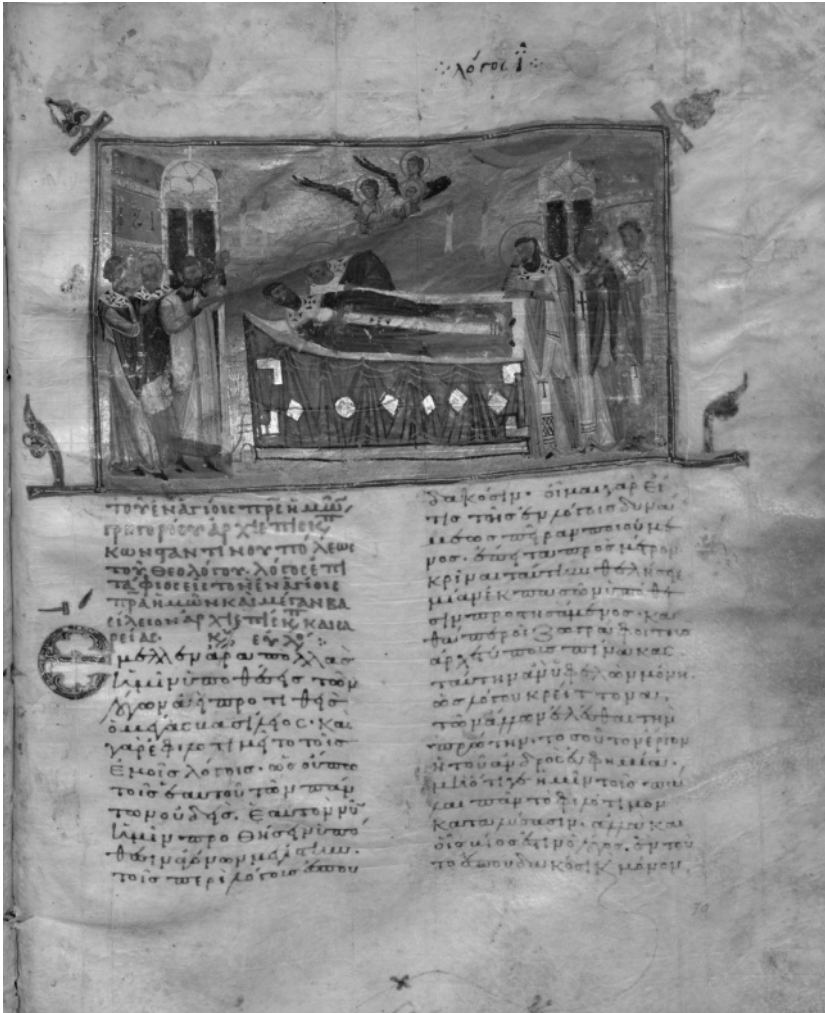 λόγος ῑ
τοῦ ἐν ἁγίοις π̅ρ̅ς ἡμῶν
γρηγορίου ἀρχιεπισκ
κωνσταντινουπόλεως
τοῦ θεολόγου· λόγος ἐπι
τάφιος εἰς τὸν ἐν ἁγίοις
π̅ρ̅α ἡμῶν καὶ μέγαν βα
σίλειον ἀρχιεπίσκ καισα
ρείας· κε εὐλο :
Ἔμελλεν ἄρα πολλὰς
ἡμῖν ὑποθέσεις τῶν
λόγων ἀεὶ προτιθεὶς
ὁ μέγας βασίλειος· καὶ
γὰρ ἐφιλοτιμεῖτο τοῖς
ἐμοῖς λόγοις· ὡς οὔπω
τοῖς ἑαυτοῦ τῶν πάν
των οὐδείς. ἑαυτὸν νῦν
ἡμῖν προθήσειν ὑπό
θεσιν ἀγώνων μεγίστην·
τοῖς περὶ λόγους ἐσπου
δακόσιν· οἶμαι γὰρ εἴ
τις τῆς ἐν λόγοις δυνά
μεως πεῖραν ποιούμε
νος· ἔπειτα πρὸς μέτρον
κρῖναι ταύτην θελήσειε
μίαν ἐκ πασῶν ὑπόθε
σιν προστησάμενος· κα
θάπερ οἱ ζωγράφοι τοὺς
ἀρχετύπους πίνακας·
ταύτην ἂν ὑφελὼν μόνην·
ὡς λόγου κρείττονα,
τῶν ἄλλων ἑλέσθαι τὴν
πρώτην· τοσοῦτον ἔργον
ἡ τοῦ ἀνδρὸς εὐφημία.
μὴ ὅτι γε ἡμῖν τοῖς πά
λαι πᾶν τὸ φιλότιμον
καταλύσασιν· ἀλλὰ καὶ
οἷς βίος ἐστὶν ὁ λόγος· ἓν τοῦ
το ἐσπουδακόσι κ μόνον·